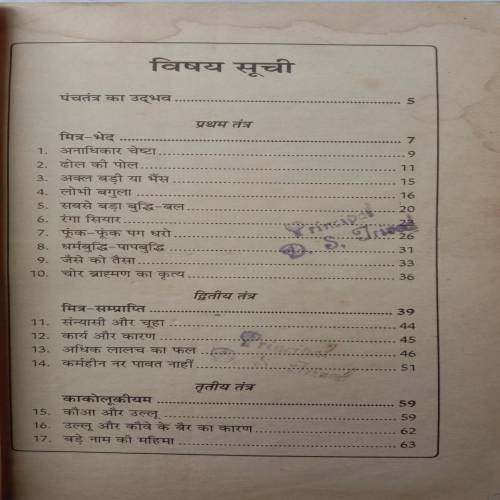 विषय सूची
पंचतंत्र का उद्भव ........ 5
प्रथम तंत्र
मित्र-भेद ........ 7
1. अनाधिकार चेष्टा ........ 9
2. ढोल की पोल ........ 11
3. अक्ल बड़ी या भैंस ........ 15
4. लोभी बगुला ........ 16
5. सबसे बड़ा बुद्धि-बल ........ 20
6. रंगा सियार ........ 23
7. फूंक-फूंक पग धरो ........ 26
8. धर्मबुद्धि-पापबुद्धि ........ 31
9. जैसे को तैसा ........ 33
10. चोर ब्राह्मण का कृत्य ........ 36
Principal
D. S. 
द्वितीय तंत्र
मित्र-सम्प्राप्ति ........ 39
11. संन्यासी और चूहा ........ 44
12. कार्य और कारण ........ 45
13. अधिक लालच का फल ........ 46
14. कर्महीन नर पावत नाहीं ........ 51
Principal
तृतीय तंत्र
काकोलूकीयम ........ 59
15. कौआ और उल्लू ........ 59
16. उल्लू और कौवे के बैर का कारण ........ 62
17. बड़े नाम की महिमा ........ 63